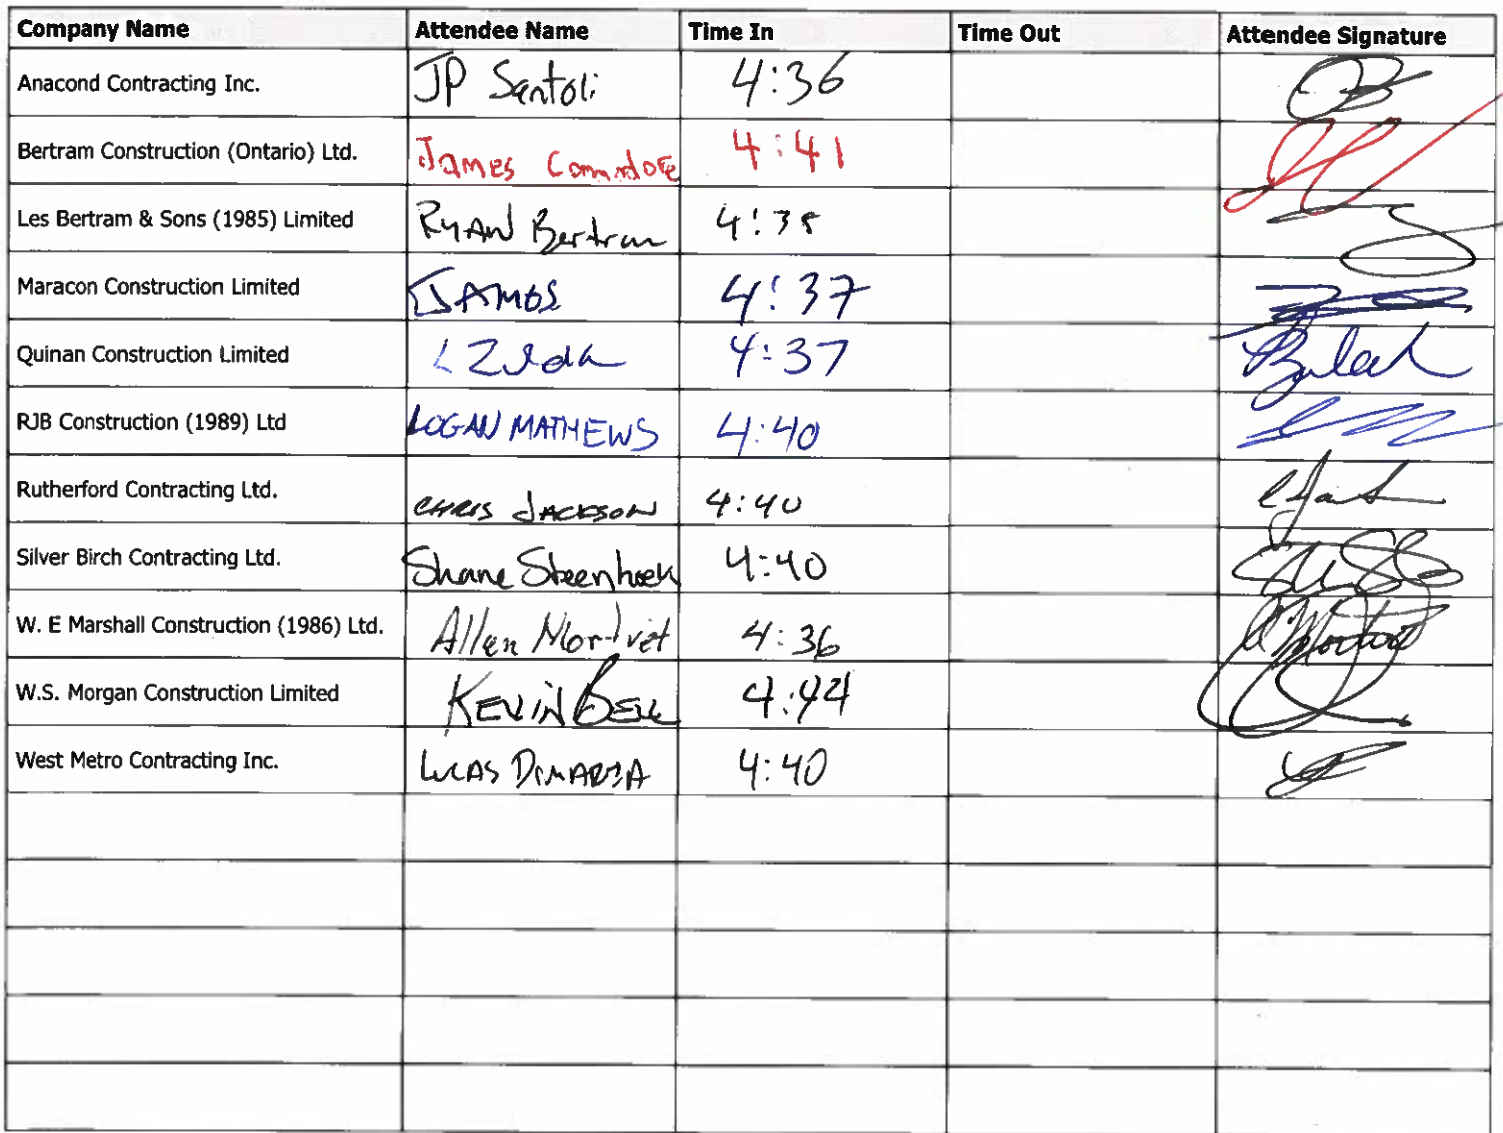 Company Name Attendee Name Time In Time Out Attendee Signature
Anacond Contracting Inc. JP Santoli 4:36
Bertram Construction (Ontario) Ltd. James Commodore 4:41
Les Bertram & Sons (1985) Limited RYAN Bertram 4:35
Maracon Construction Limited 4:37
Quinan Construction Limited 4:37
RJB Construction (1989) Ltd LOGAN MATHEWS 4:40
Rutherford Contracting Ltd. CHRIS JACKSON 4:40
Silver Birch Contracting Ltd. Shane Steenhoek 4:40
W. E Marshall Construction (1986) Ltd. Allen 4:36
W.S. Morgan Construction Limited KEVIN BELL 4:44
West Metro Contracting Inc. LUCAS DIMARIA 4:40